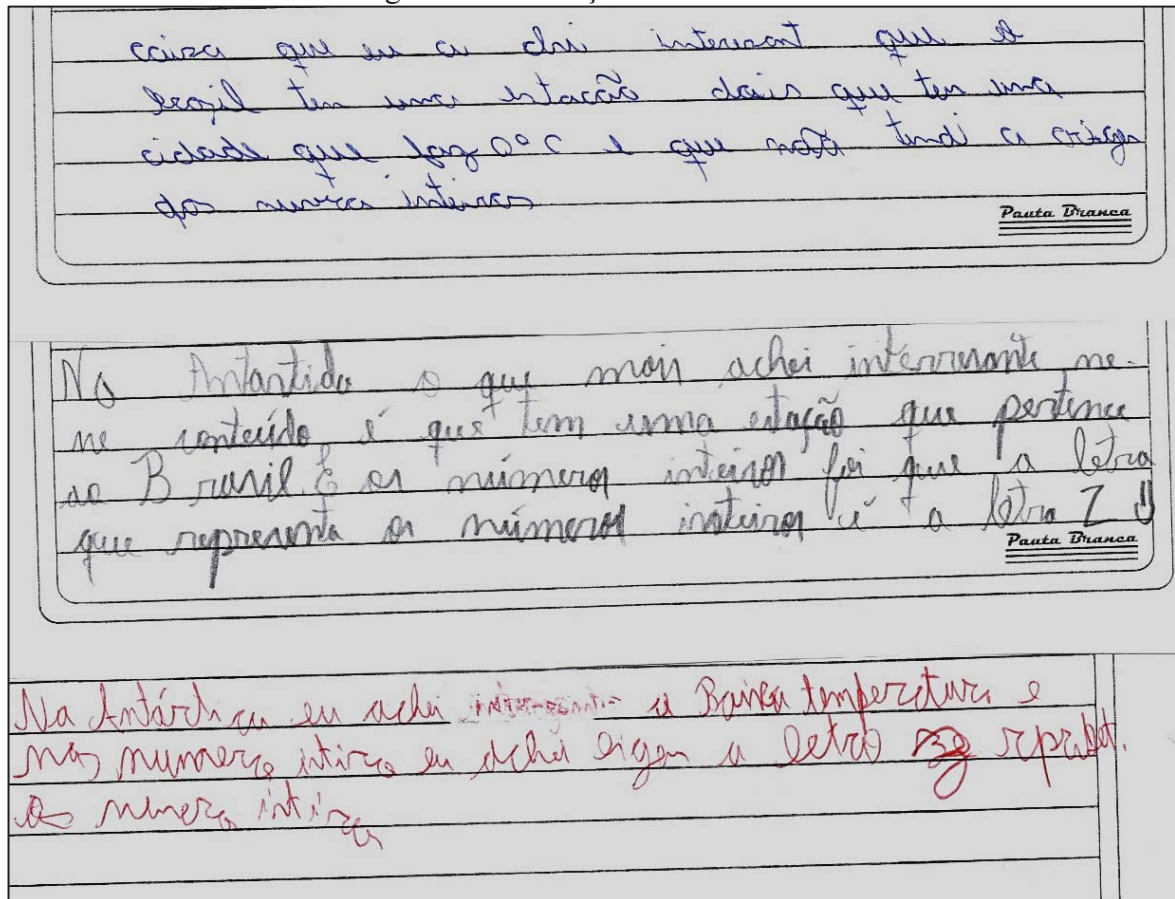 coisa que eu a chri interesant que o
brazil ten uma estacão dois que ten uma
cidade que faz 0° C e que não tendi a origen
dos inteiros
Pauta Branca
Na Antantida o que mais achei interresante ne-
ne conteúdo, é que tem uma estação que pertence
ao Brasil. E os números inteiros foi que a letra
que representa os números inteiros é a letra Z
Pauta Branca
Na Antártica eu achei interesante a Baixa temperatura e
nos numeros intiros eu achei a letra
intiros